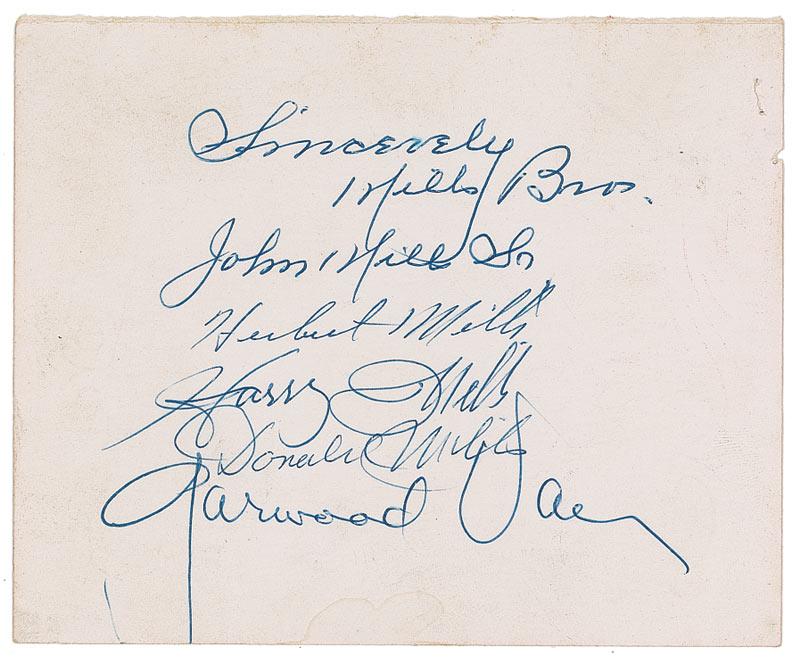 Sincerely
Mills Bros.
John Mills Sr
Herbert Mills
Harry Mills
Donald Mills
Garwood Van